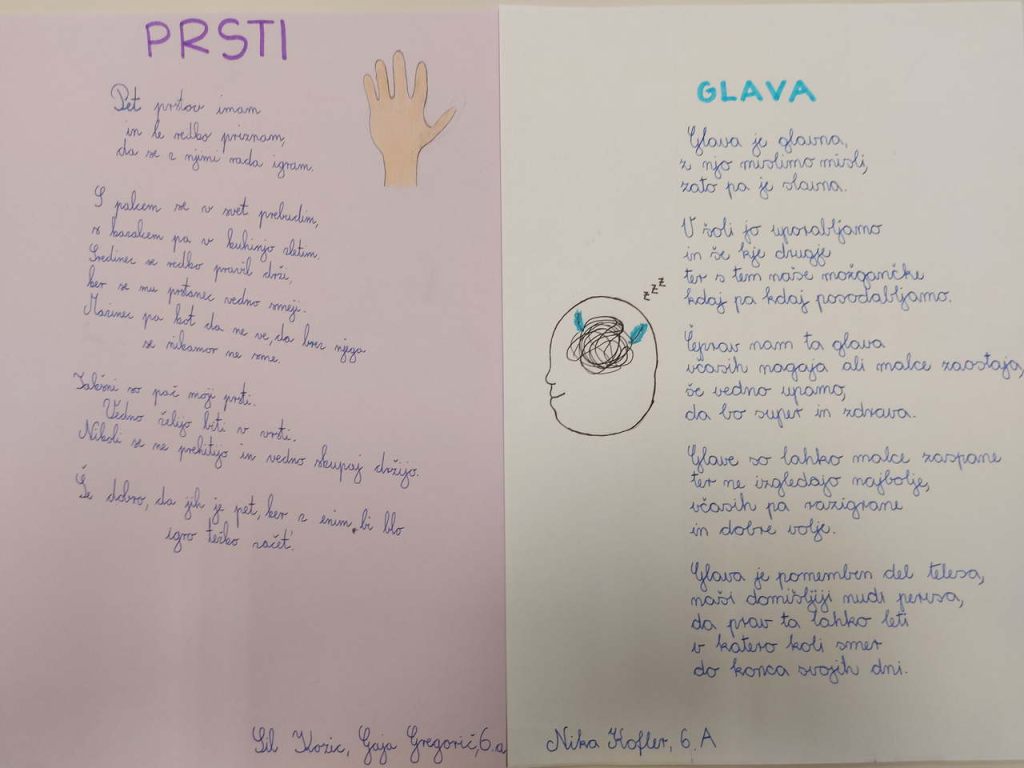 PRSTI
Pet prstov imam
in le redko priznam,
da se z njimi rada igram.
S palcem se v svet prebudim,
s kazalcem pa v kuhinjo zletim.
Sredinec se redko pravil drži,
ker se mu prstanec vedno smeji.
Mezinec pa kot da ne ve, da brez njega
se nikamor ne sme.
Takšni so pač moji prsti.
Vedno želijo biti v vrsti.
Nikoli se ne prehitijo in vedno skupaj držijo.
Še dobro, da jih je pet, ker z enim bi blo
igro težko začet.
Lil Kozic, Gaja Gregorič, 6.a
GLAVA
Glava je glavna,
z njo mislimo misli,
zato pa je slavna.
V šoli jo uporabljamo
in še kje drugje
ter s tem naše možgančke
kdaj pa kdaj posodabljamo.
zzz
Čeprav nam ta glava
včasih nagaja ali malce zaostaja,
še vedno upamo,
da bo super in zdrava.
Glave so lahko malce zaspane
ter ne izgledajo najbolje,
včasih pa razigrane
in dobre volje.
Glava je pomemben del telesa,
naši domišljiji nudi peresa,
da prav ta lahko leti
v katero koli smer
do konca svojih dni.
Nika Kofler, 6. A